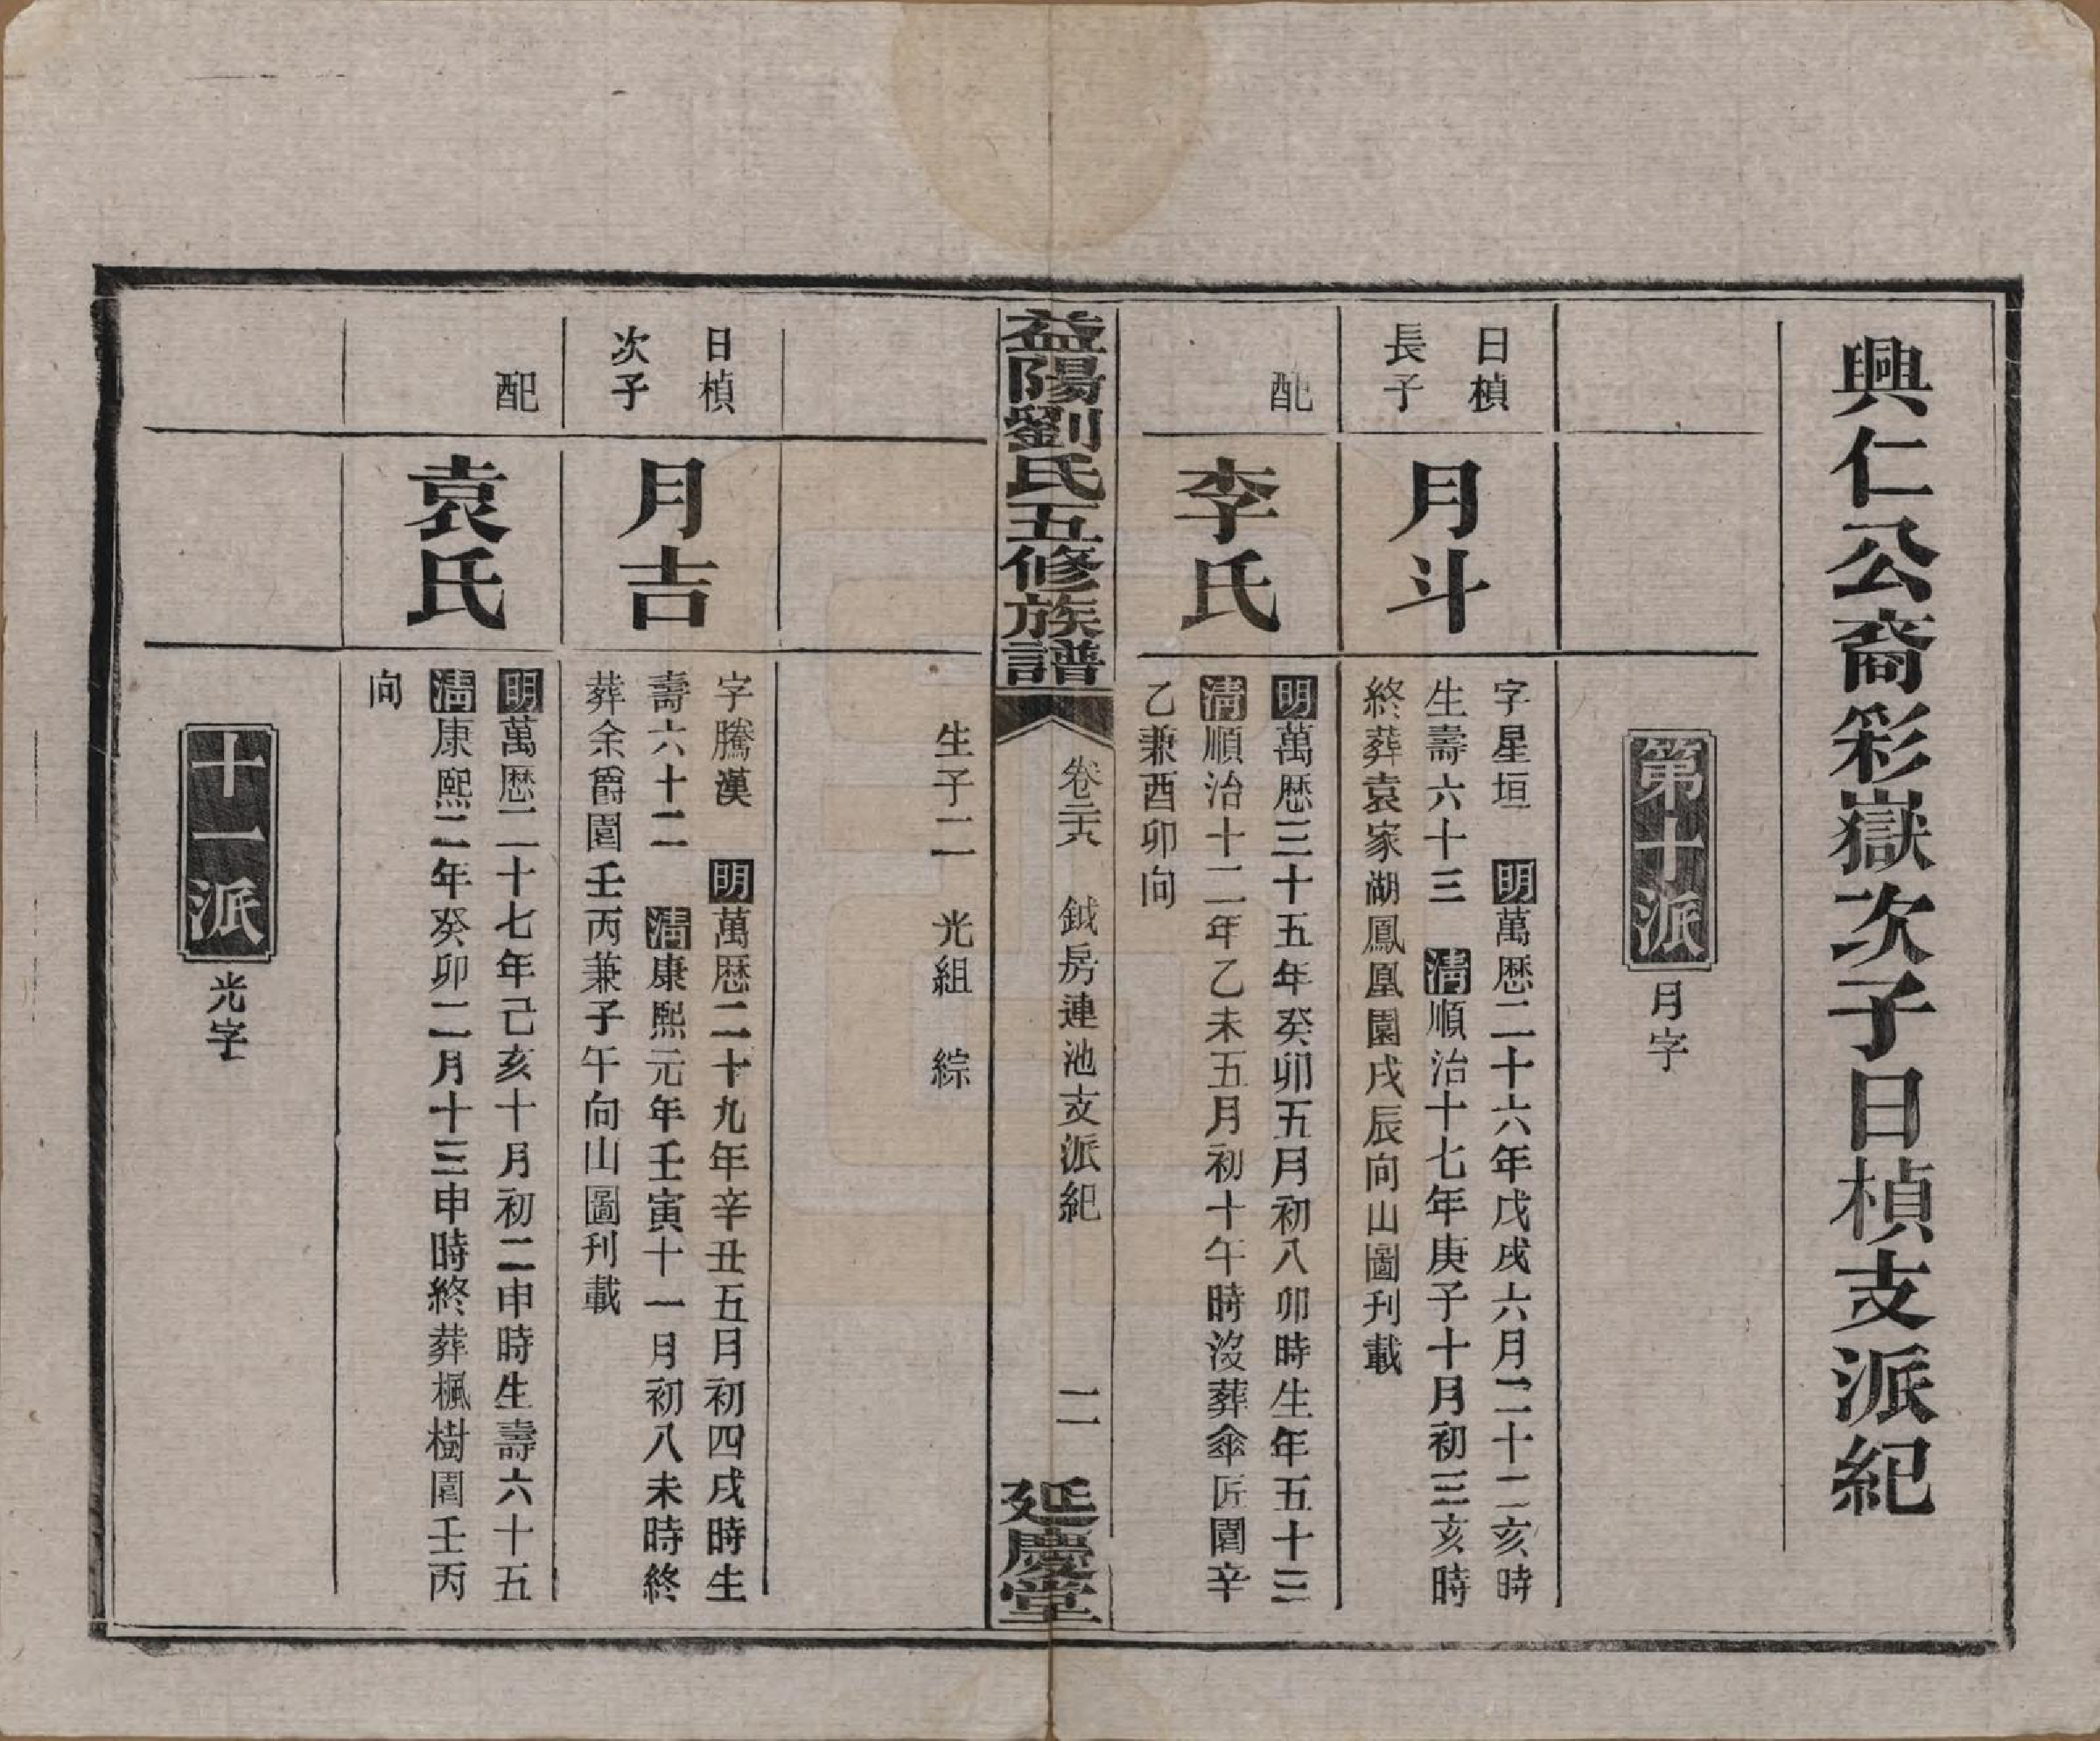 興仁公裔彩嶽次子日楨支派紀
第十派
月字
日楨
長子
月斗
字星垣　明萬歷二十六年戊戌六月二十二亥時
生壽六十三　清順治十七年庚子十月初三亥時
終葬袁家湖鳳凰園戌辰向山圖刊載
配
李氏
明萬歷三十五年癸卯五月初八卯時生年五十三
清順治十二年乙未五月初十午時沒葬傘匠園辛
乙兼酉卯向
益陽劉氏五修族譜
卷二六　鉞房連池支派紀
二
延慶堂
生子二　光組　綜
日楨
次子
月吉
字騰漢　明萬歷二十九年辛丑五月初四戌時生
壽六十二　清康熙元年壬寅十一月初八未時終
葬余爵園壬丙兼子午向山圖刊載
配
袁氏
明萬歷二十七年己亥十月初二申時生壽六十五
清康熙二年癸卯二月十三申時終葬楓樹園壬丙
向
十一派
光字